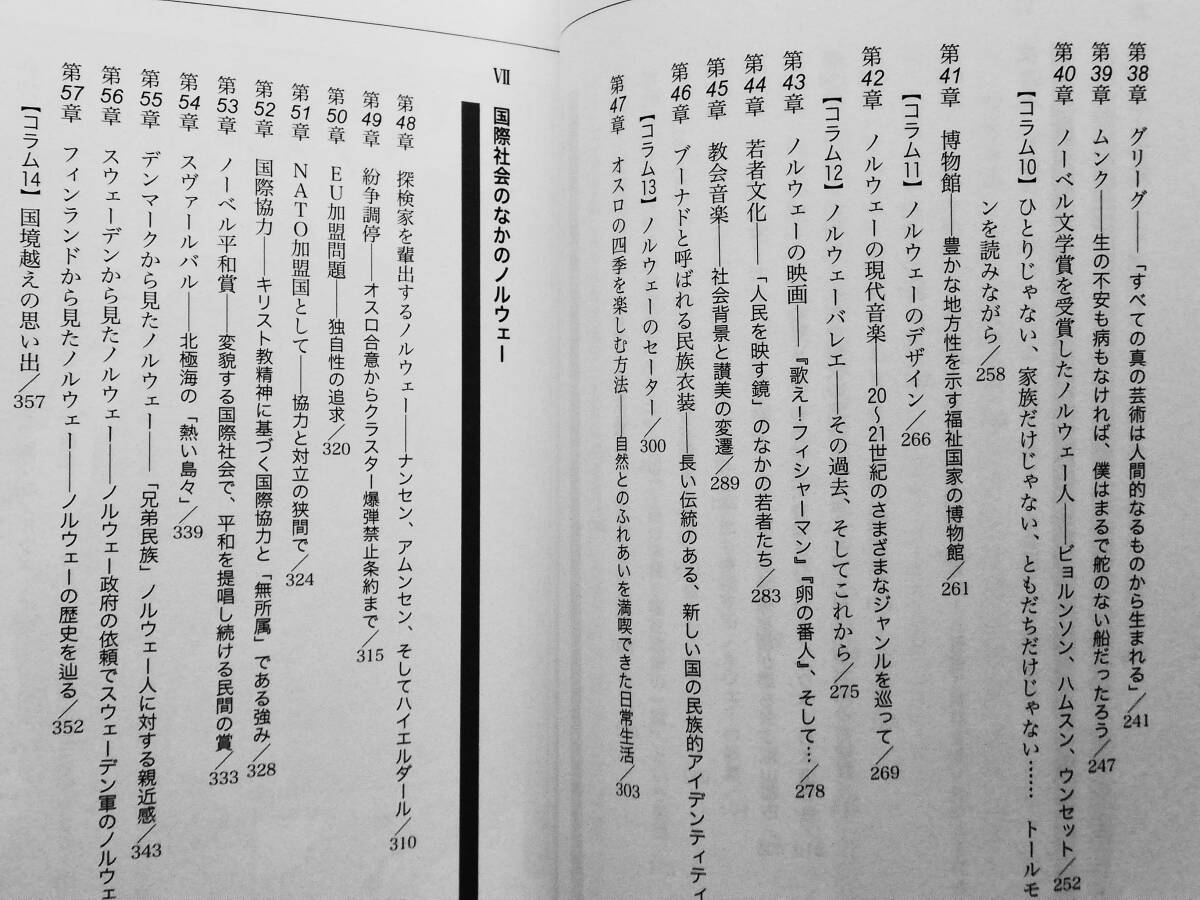 第38章 グリーグ――「すべての真の芸術は人間的なるものから生まれる」／241
第39章 ムンク――生の不安も病もなければ、僕はまるで舵のない船だったろう／247
第40章 ノーベル文学賞を受賞したノルウェー人――ビョルンソン、ハムスン、ウンセット／252
【コラム10】ひとりじゃない、家族だけじゃない、ともだちだけじゃない…… トールモ
ンを読みながら／258
第41章 博物館――豊かな地方性を示す福祉国家の博物館／261
【コラム11】ノルウェーのデザイン／266
第42章 ノルウェーの現代音楽――20〜21世紀のさまざまなジャンルを巡って／269
【コラム12】ノルウェーバレエ――その過去、そしてこれから／275
第43章 ノルウェーの映画――『歌え！フィシャーマン』『卵の番人』、そして…／278
第44章 若者文化――「人民を映す鏡」のなかの若者たち／283
第45章 教会音楽――社会背景と讃美の変遷／289
第46章 ブーナドと呼ばれる民族衣装――長い伝統のある、新しい国の民族的アイデンティティ
【コラム13】ノルウェーのセーター／300
第47章 オスロの四季を楽しむ方法――自然とのふれあいを満喫できた日常生活／303
Ⅶ 国際社会のなかのノルウェー
第48章 探検家を輩出するノルウェー――ナンセン、アムンセン、そしてハイエルダール／310
第49章 紛争調停――オスロ合意からクラスター爆弾禁止条約まで／315
第50章 EU加盟問題――独自性の追求／320
第51章 NATO加盟国として――協力と対立の狭間で／324
第52章 国際協力――キリスト教精神に基づく国際協力と「無所属」である強み／328
第53章 ノーベル平和賞――変貌する国際社会で、平和を提唱し続ける民間の賞／333
第54章 スヴァールバル――北極海の「熱い島々」／339
第55章 デンマークから見たノルウェー――「兄弟民族」ノルウェー人に対する親近感／343
第56章 スウェーデンから見たノルウェー――ノルウェー政府の依頼でスウェーデン軍のノルウェ
第57章 フィンランドから見たノルウェー――ノルウェーの歴史を辿る／352
【コラム14】国境越えの思い出／357